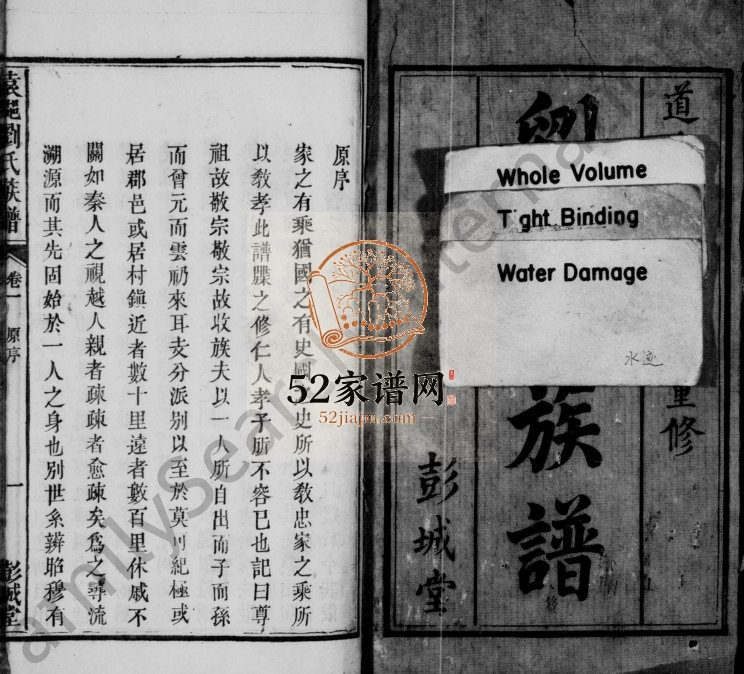 道
重修
劉
族譜
彭城堂
Whole Volume
Tight Binding
Water Damage
水
原序
家之有乘猶國之有史國史所以敎忠家之乘所
以敎孝此譜牒之修仁人孝子所不容已也記曰尊
祖故敬宗敬宗故收族夫以一人所自出而子而孫
而曾元而雲礽來耳支分派別以至於莫可紀極或
居郡邑或居村鎭近者數十里遠者數百里休戚不
關如秦人之視越人親者疎疎者愈疎矣爲之尋流
溯源而其先固始於一人之身也別世系辨昭穆有
袁邑劉氏族譜
卷一
原序
一
彭城堂
52家谱网
52jiapu.com
FamilySearch International